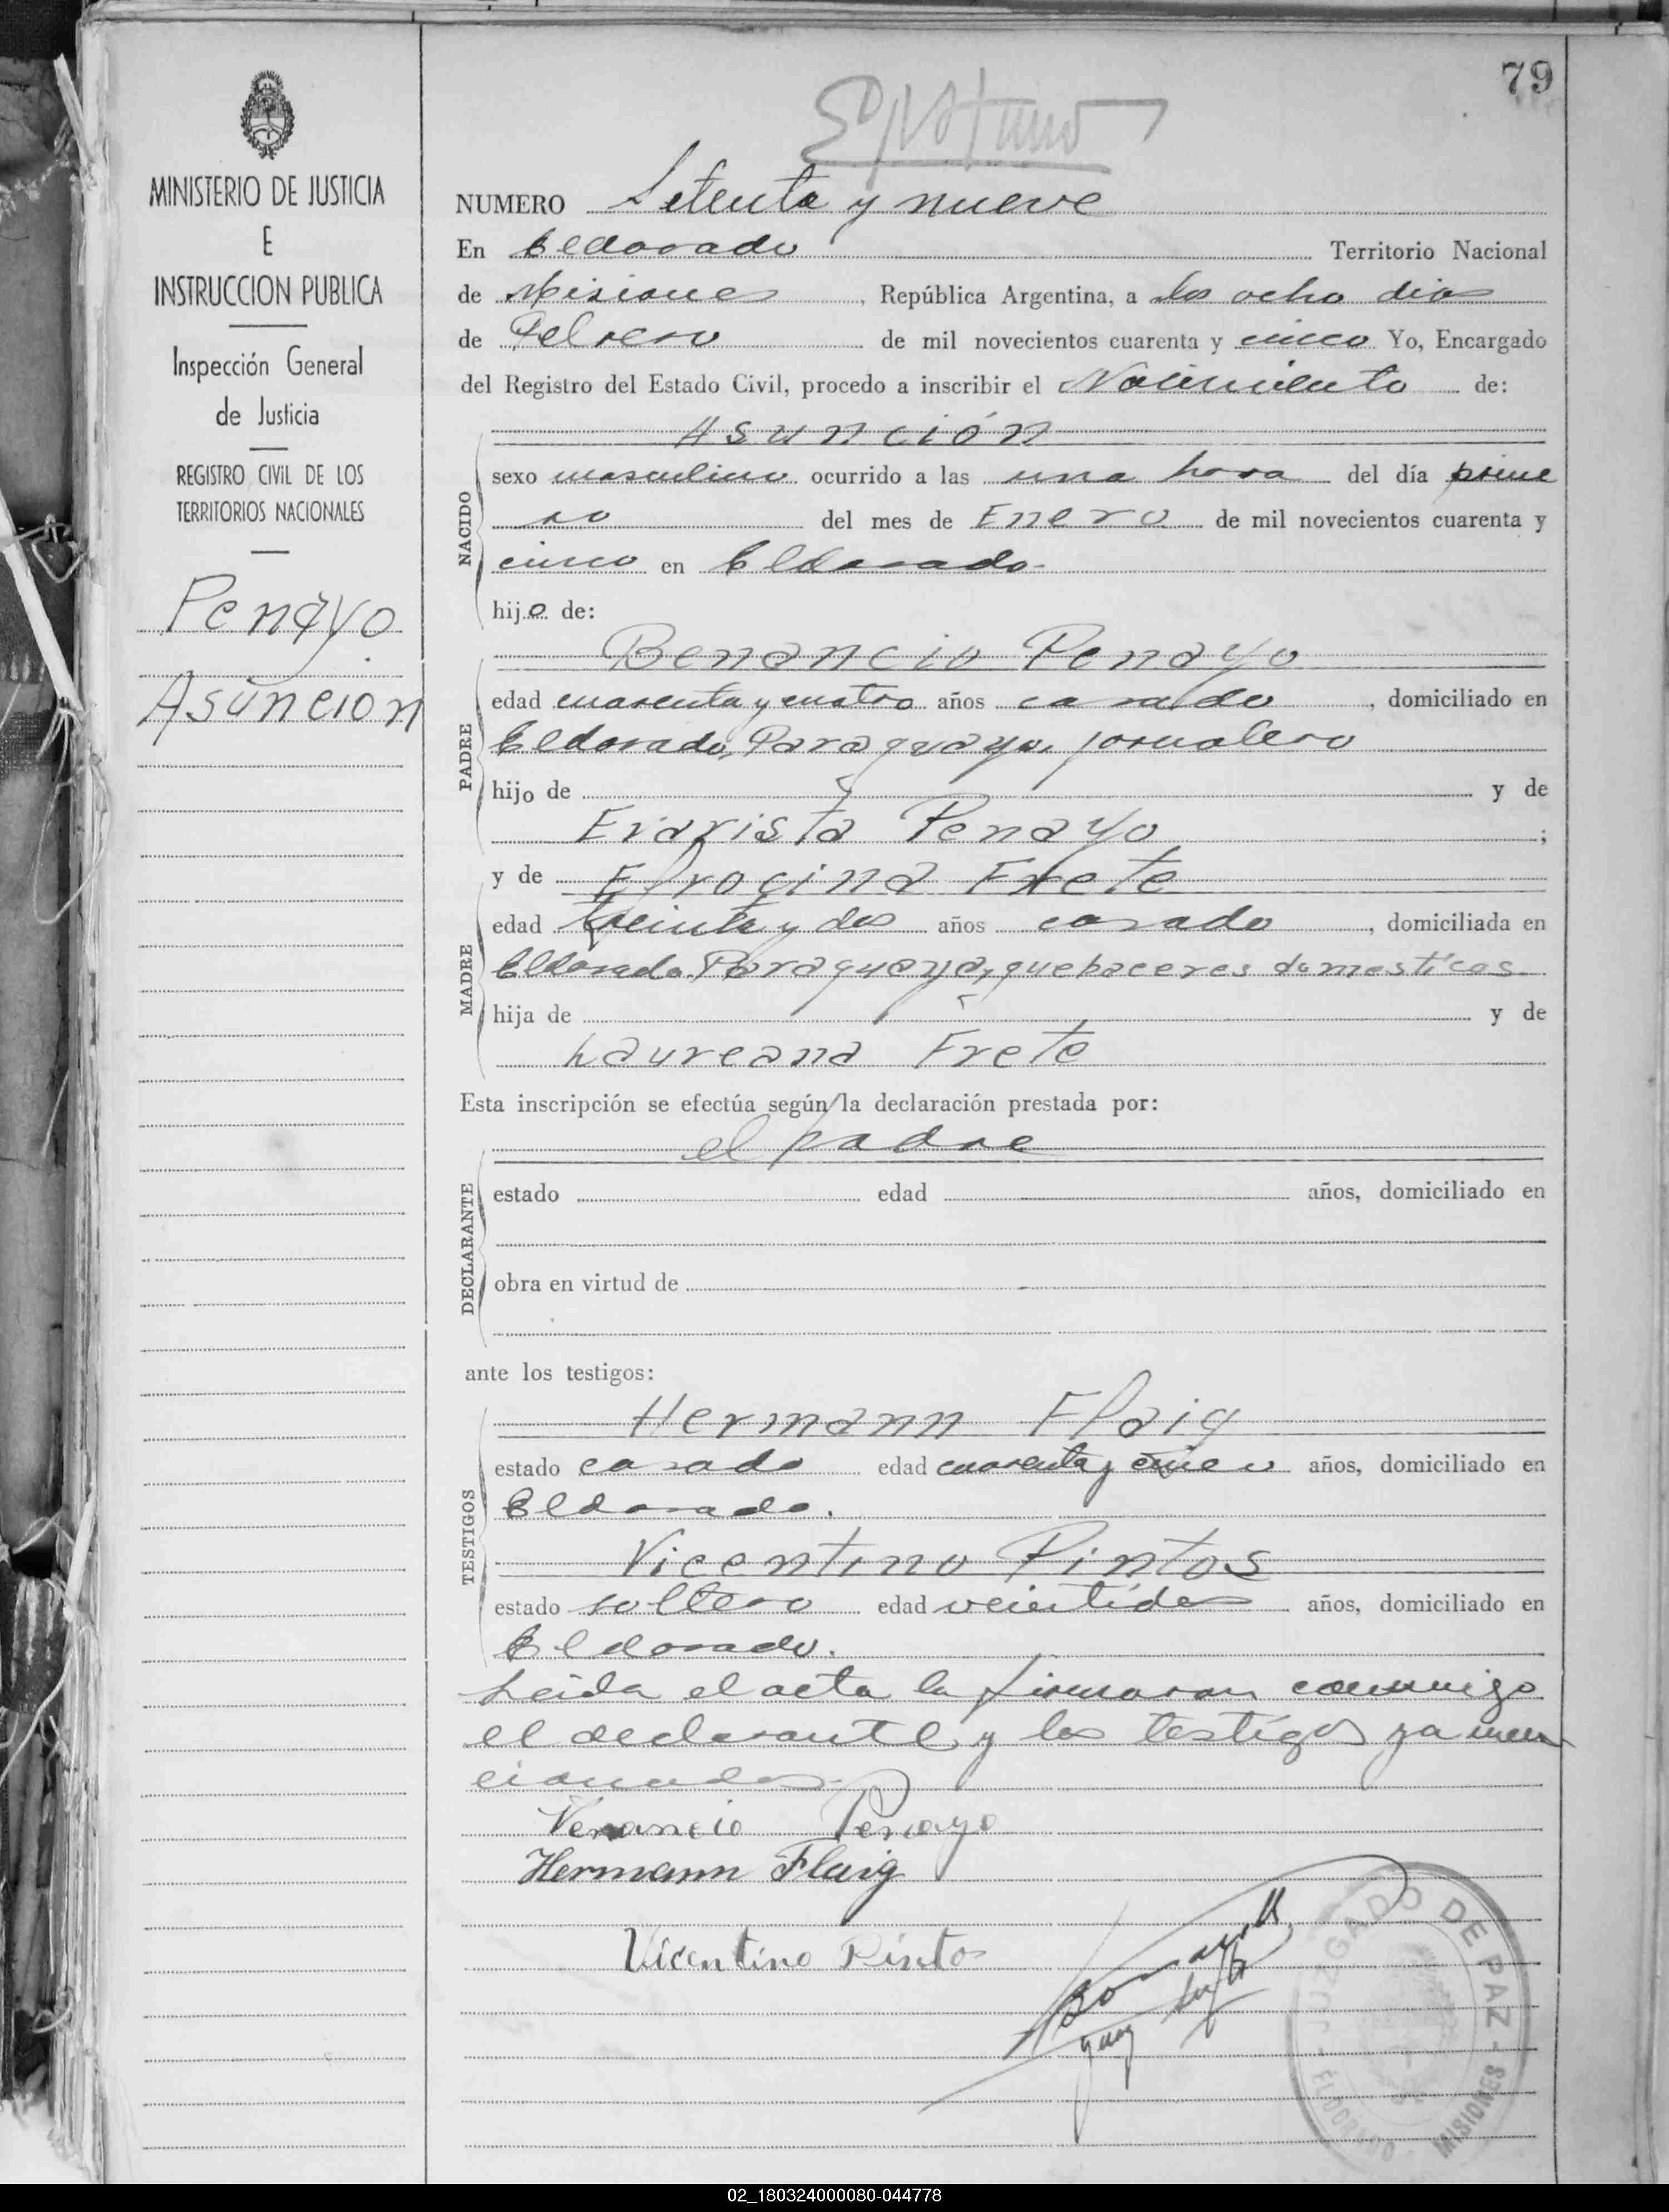 79
MINISTERIO DE JUSTICIA
E
INSTRUCCION PUBLICA
Inspección General
de Justicia
REGISTRO CIVIL DE LOS
TERRITORIOS NACIONALES
Penayo
Asuncion
NUMERO Setenta y nueve
En Eldorado Territorio Nacional
de Misiones, República Argentina, a los ocho dias
de Febrero de mil novecientos cuarenta y cinco Yo, Encargado
del Registro del Estado Civil, procedo a inscribir el Nacimiento de:
Asunción
NACIDO
sexo masculino ocurrido a las una hora del día prime
ro del mes de Enero de mil novecientos cuarenta y
cinco en Eldorado.
hijo de:
Benancio Penayo
PADRE
edad cuarenta y cuatro años casado, domiciliado en
Eldorado, Paraguayo, jornalero
hijo de y de
Evarista Penayo;
y de Efrocina Frete
MADRE
edad treinta y dos años casado, domiciliada en
Eldorado. Paraguaya, quehaceres domesticos
hija de y de
Laureana Frete
Esta inscripción se efectúa según la declaración prestada por:
el padre
DECLARANTE
estado edad años, domiciliado en
obra en virtud de
ante los testigos:
TESTIGOS
Hermann Flaig
estado casado edad cuarenta y cinco años, domiciliado en
Eldorado.
Vicentino Pintos
estado soltero edad veintidos años, domiciliado en
Eldorado.
Leida el acta la firmaron conmigo
el declarante y los testigos ya men
cionados.
Venancio Penayo
Hermann Flaig
Vicentino Pintos
JUZGADO DE PAZ - MISIONES - ELDORADO
02_180324000080-044778